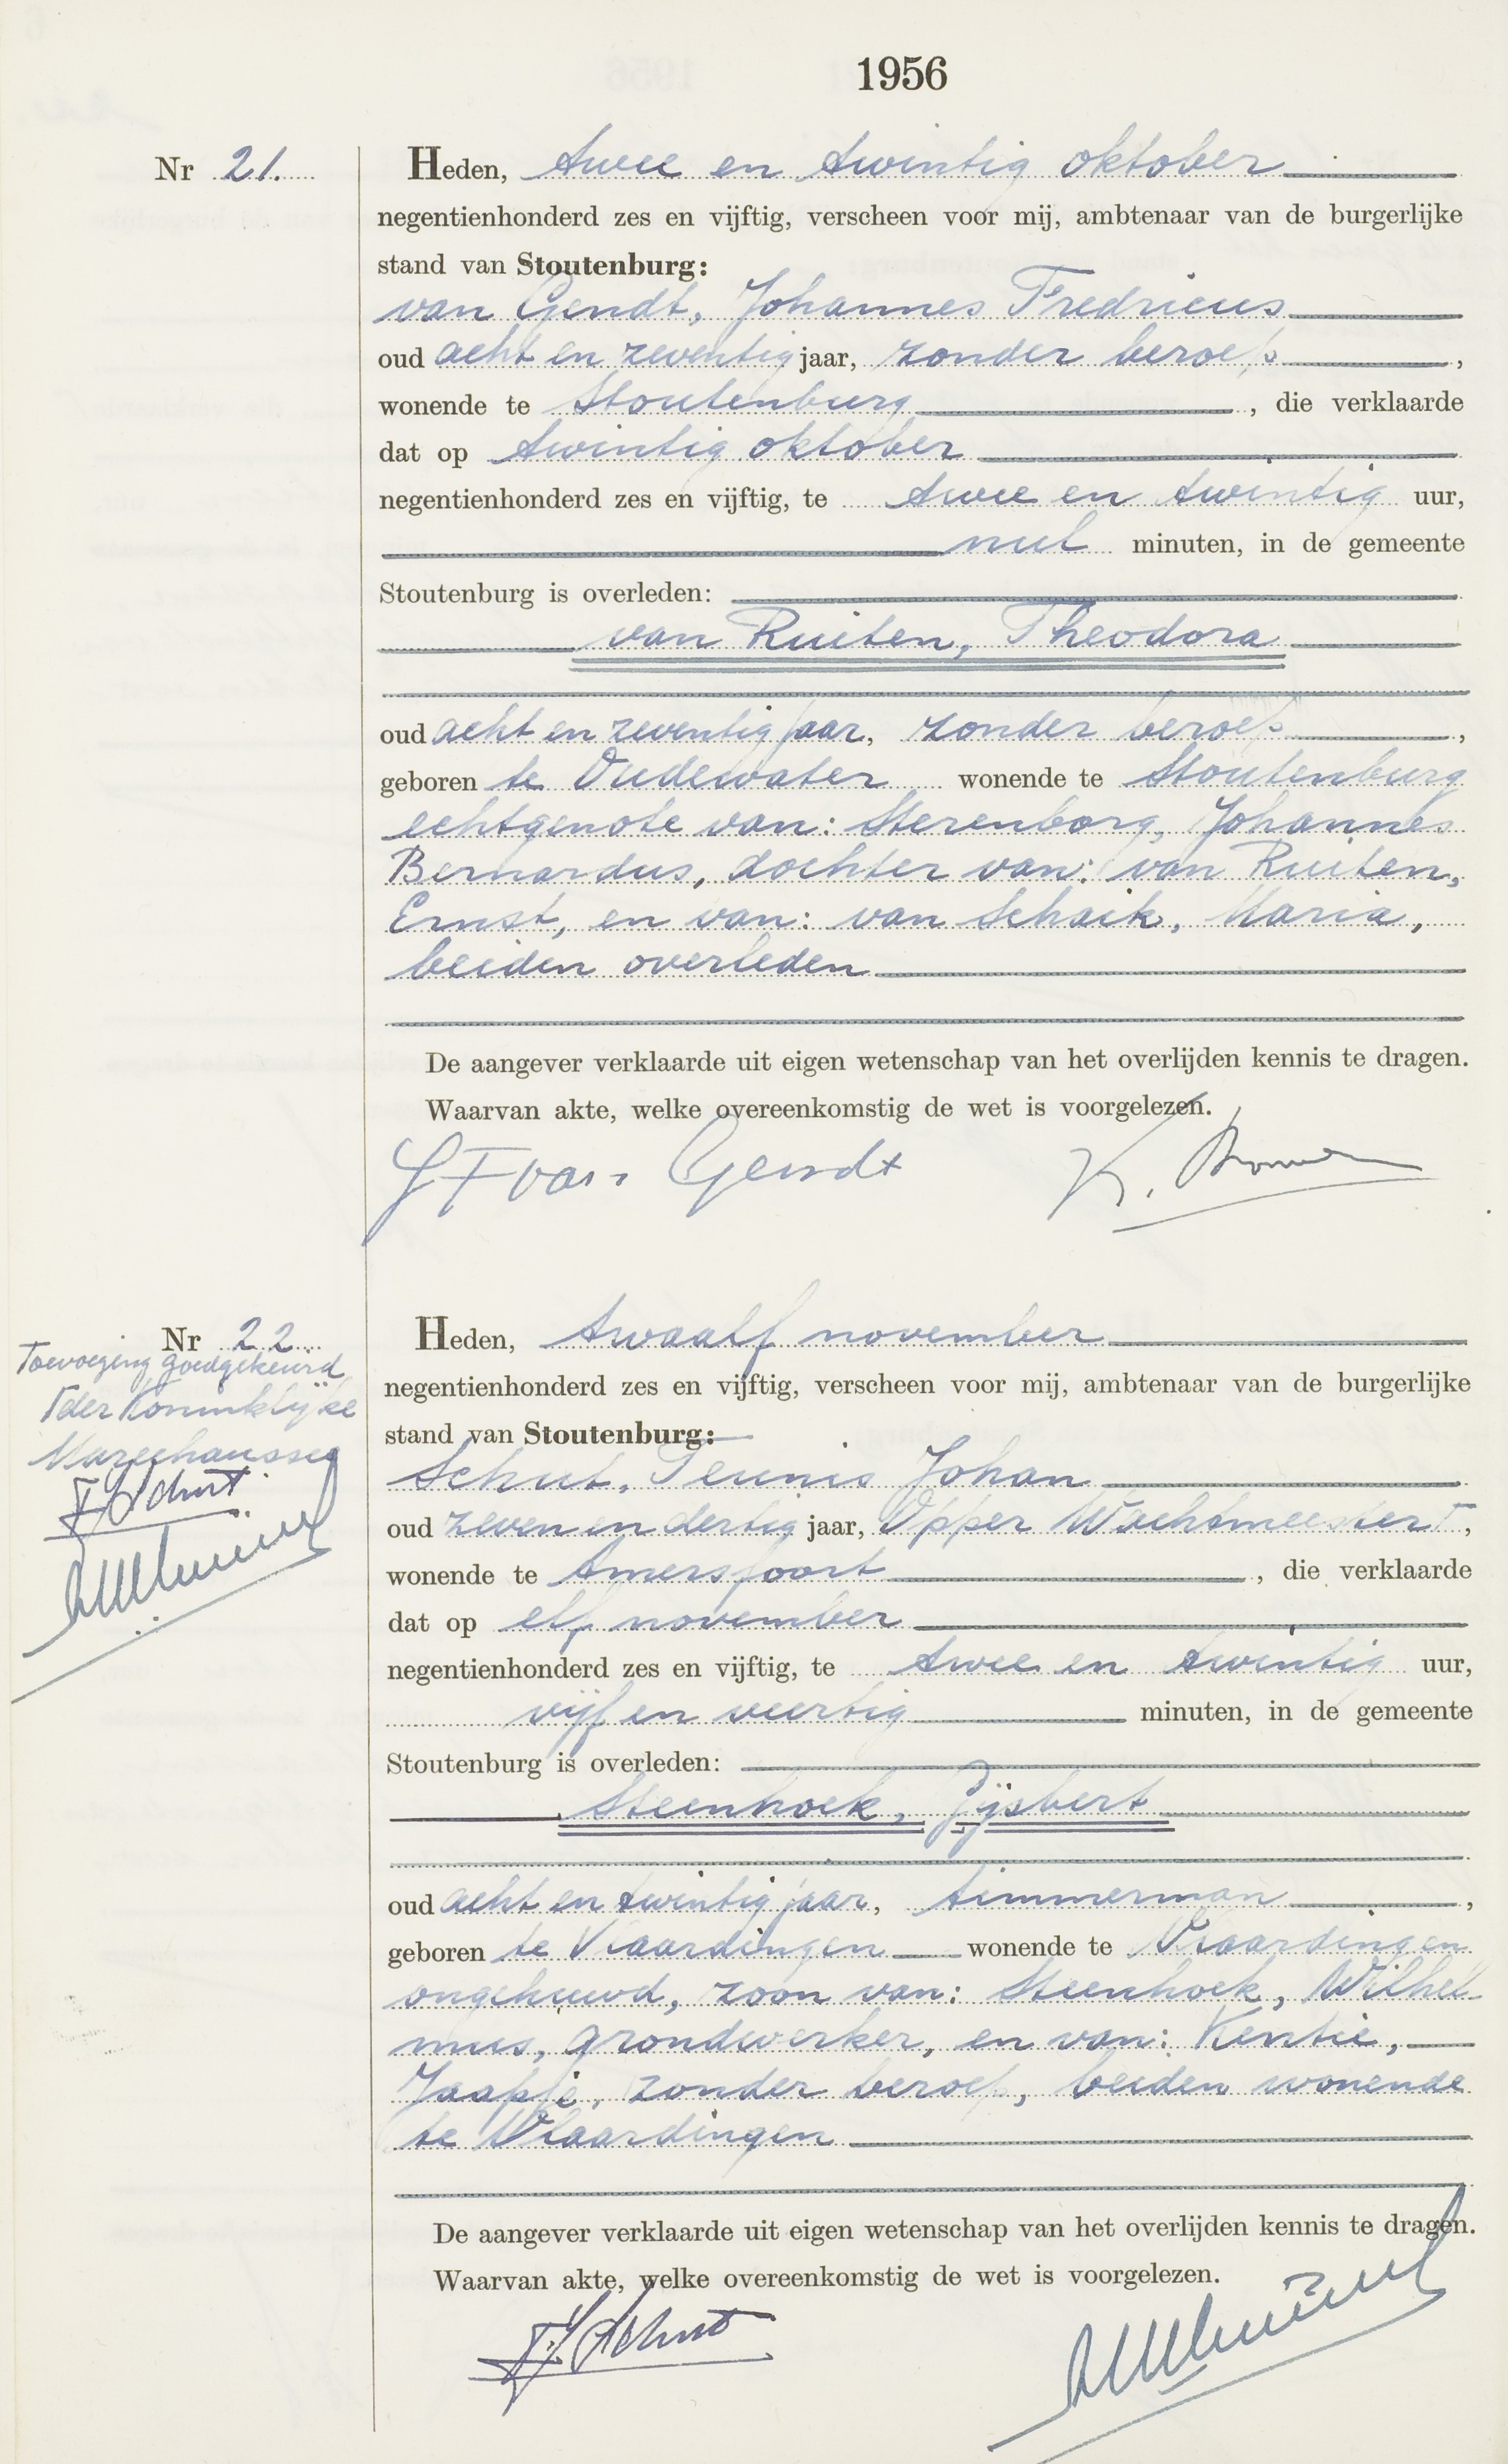 1956
Nr 21.
Heden, twee en twintig oktober
negentienhonderd zes en vijftig, verscheen voor mij, ambtenaar van de burgerlijke
stand van Stoutenburg:
van Gendt, Johannes Fredricus
oud acht en zeventig jaar, zonder beroep,
wonende te Stoutenburg, die verklaarde
dat op twintig oktober
negentienhonderd zes en vijftig, te twee en twintig uur,
nul minuten, in de gemeente
Stoutenburg is overleden:
van Ruiten, Theodora
oud acht en zeventig jaar, zonder beroep,
geboren te Oudewater wonende te Stoutenburg
echtgenote van: Sterenborg, Johannes
Bernardus, dochter van: van Ruiten,
Ernst, en van: van Schaik, Maria,
beiden overleden
De aangever verklaarde uit eigen wetenschap van het overlijden kennis te dragen.
Waarvan akte, welke overeenkomstig de wet is voorgelezen.
J F van Gendt K.
Nr 22
Toevoeging goedgekeurd
Γder Koninklijke
Marechaussee
TJ Schut
Heden, twaalf november
negentienhonderd zes en vijftig, verscheen voor mij, ambtenaar van de burgerlijke
stand van Stoutenburg:
Schut, Teunis Johan
oud zeven en dertig jaar, Opper Wachtmeester Γ,
wonende te Amersfoort, die verklaarde
dat op elf november
negentienhonderd zes en vijftig, te twee en twintig uur,
vijf en veertig minuten, in de gemeente
Stoutenburg is overleden:
Steenhoek, Gijsbert
oud acht en twintig jaar, timmerman,
geboren te Vlaardingen wonende te Vlaardingen
ongehuwd, zoon van: Steenhoek, Wilhel-
mus, grondwerker, en van: Kentie,
Jaapje, zonder beroep, beiden wonende
te Vlaardingen
De aangever verklaarde uit eigen wetenschap van het overlijden kennis te dragen.
Waarvan akte, welke overeenkomstig de wet is voorgelezen.
TJ Schut